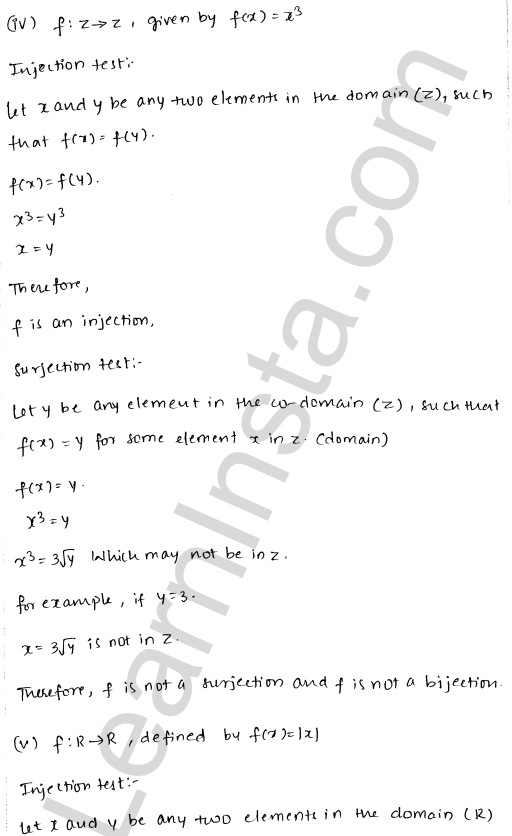 (iv) f: Z→Z, given by f(x)=x³
Injection test:-
Let x and y be any two elements in the domain (Z), such
that f(x)= f(y).
f(x)=f(y).
x³=y³
x=y
Therefore,
f is an injection,
Surjection test:-
Let y be any element in the co-domain (Z), such that
f(x) = y for some element x in z. (domain)
f(x)= y.
x³=y
x³= 3√y Which may not be in z.
for example, if y=3.
x= 3√y is not in Z.
Therefore, f is not a surjection and f is not a bijection.
(v) f:R→R, defined by f(x)=|x|
Injection test:-
Let x and y be any two elements in the domain (R)
LearnInsta.com